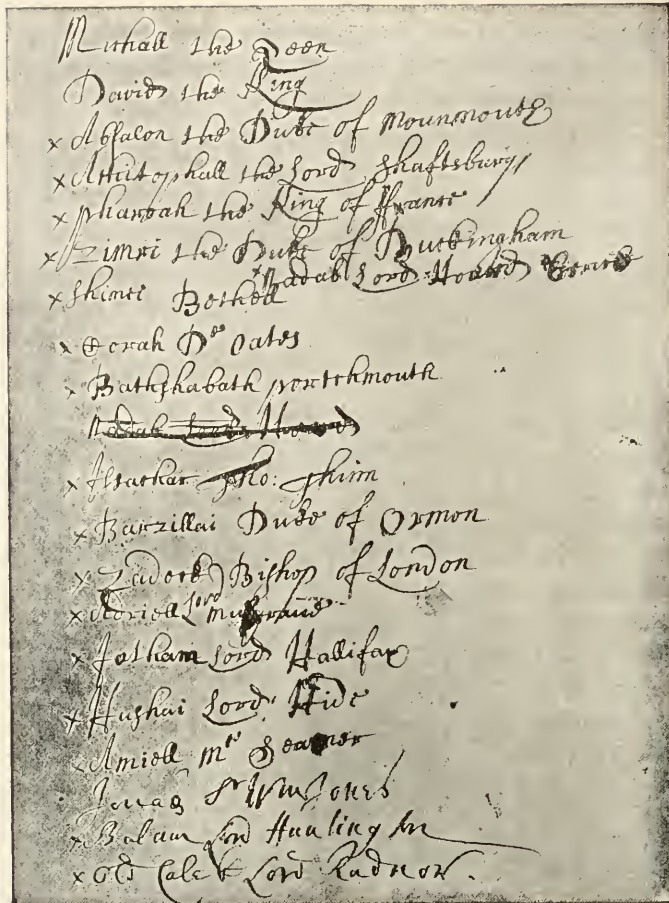 Michall the Qeen
David the King
x Absalon the Duke of Mounmouth
x Achitophall the Lord Shaftsbury
x Pharoah the King of ffrance
x Zimri the Duke of Buckingham
x Nadab Lord Howard
x Shimei Bethell
x Corah Dr Oates
x Bathshabath portchmouth
Nadab Lord Howard
x Issachar Tho: Thinn
x Barzillai Duke of Ormon
x Zadock Bishop of London
x Adriell Lord
x Jotham Lord Hallifax
x Hushai Lord Hide
x Amiell Mr Seamer
Jonas Sr Wm Jones
x Balam Lord Huntington
x Old Caleb Lord Radnor.